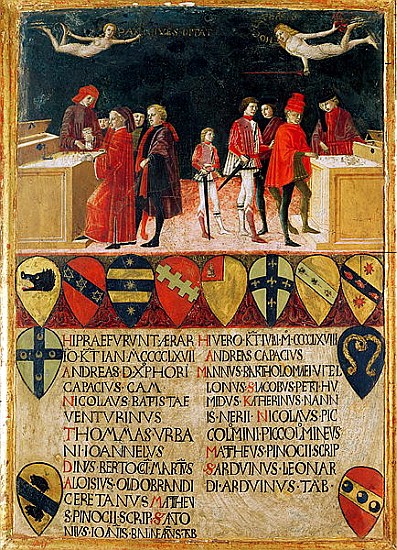 PAX CIVES OPTAT
HI PRAEFVRVNT AERAR
IO KT IAN M CCCCLXVII
ANDREAS D XPHORI
CAPACIVS CAM
NICOLAVS BATISTAE
VENTVRINVS
THOMMAS VRBA
NI IOANNELVS
DINVS BERTOCI MARTIIS
ALOISIVS OLDOBRANDI
CERETANVS MATHEV
S PINOCII SCRIP SATO
NIVS IOANIS BALNEANS TAB
HI VERO KT IVLII M CCCCLXVIII
ANDREAS CAPACIVS
MANNVS BARTHOLOMAEI VITEL
LONVS IACOBVS PETRI HV
MIDVS KATHERINVS NANN
IS NERII NICOLAVS PIC
COLMINI PICCOLMINEVS
MATHEVS PINOCII SCRIP
SARDVINVS LEONAR
DI ARDVINVS TAB